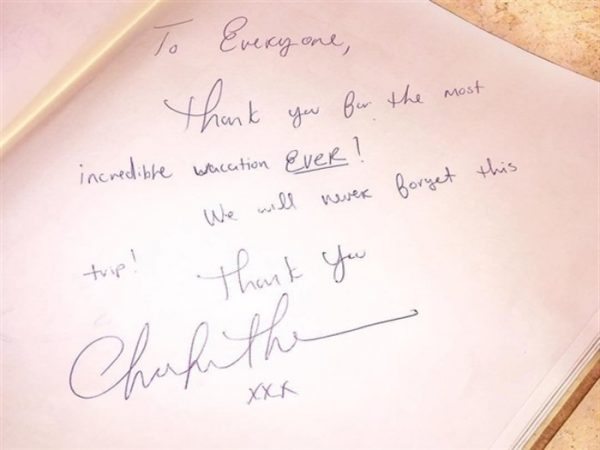 To Everyone,
Thank you for the most
incredible vacation EVER!
We will never forget this
trip! Thank You
xxx